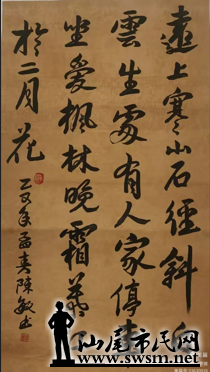 遠上寒山石徑斜白
雲生處有人家停車
坐愛楓林晚霜葉
於二月花
年春陳敏书
汕尾市民网
www.swsm.net